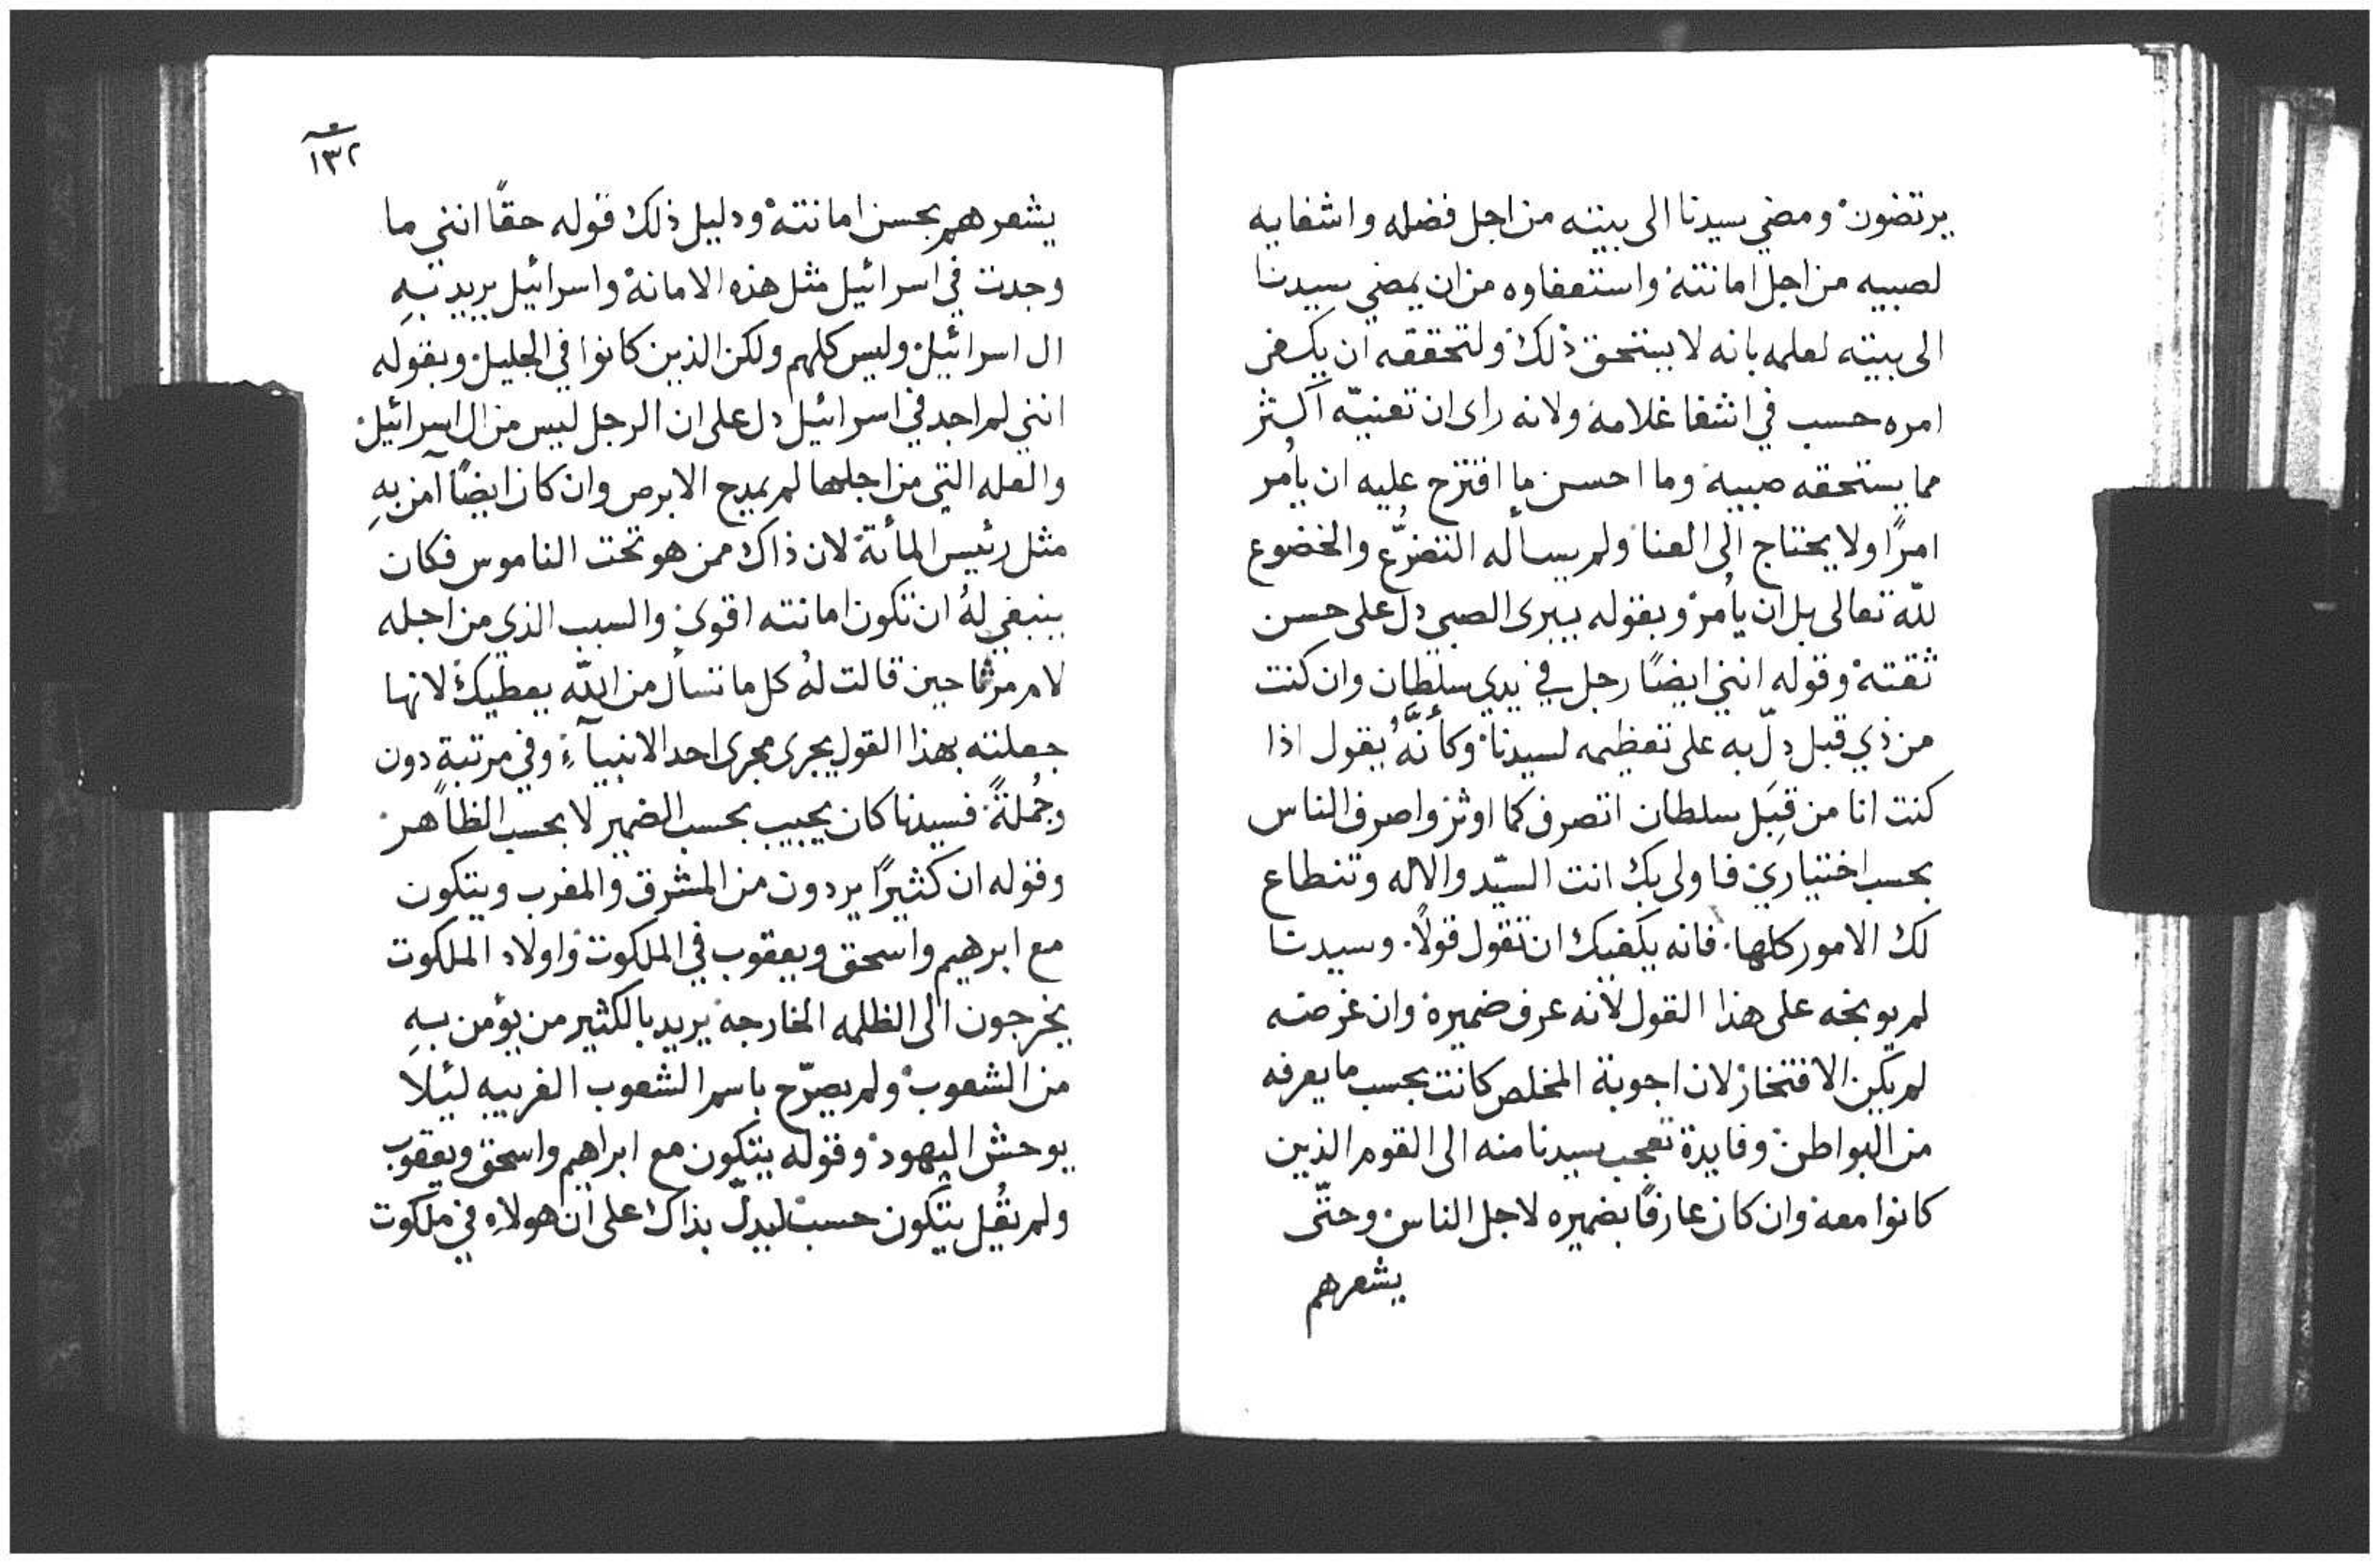 يرتضون ومضي سيدنا الى بيته من اجل فضله واشفايه
لصبيه من اجل امانته واستعفاوه من ان يمضي سيدنا
الى بيته لعلمه بانه لا يستحق ذلك ولتحققه ان يكفي
امره حسب في اشفا غلامه ولانه راى ان تعنيّه اكثر
مما يستحقه صبيه وما احسن ما اقترح عليه ان يأمر
امرًا ولا يحتاج الى العنا ولم يسأله التضرّع والخضوع
للّه تعالى بل ان يأمر وبقوله يبرى الصبي دل على حسن
ثقته وقوله انني ايضًا رجل في يدي سلطان وان كنت
من ذي قبل دلّ به على تعظيمه لسيدنا وكأنَّهُ يقول اذا
كنت انا من قِبَل سلطان اتصرف كما اوثر واصرف الناس
بحسب اختياري فاولى بك انت السيّد والاله وتنطاع
لك الامور كلها. فانه يكفيك ان تقول قولًا. وسيدنا
لم يوبخه على هذا القول لانه عرف ضميره وان غرضه
لم يكن الافتخار لان اجوبة المخلص كانت بحسب ما يعرفه
من البواطن وفايدة تعجب سيدنا منه الى القوم الذين
كانوا معه وان كان عارفًا بضميره لاجل الناس وحتّى
يشعرهم
١٣٢
يشعرهم بحسن امانته ودليل ذلك قوله حقًا انني ما
وجدت في اسرائيل مثل هذه الامانة واسرائيل يريد بهِ
ال اسرائيل وليس كلهم ولكن الذين كانوا في الجليل وبقوله
انني لم اجد في اسرائيل دل على ان الرجل ليس من ال اسرائيل
والعله التي من اجلها لم يمدح الابرص وان كان ايضًا آمن بهِ
مثل رئيس المأئة لان ذاك ممن هو تحت الناموس فكان
ينبغي لهُ ان تكون امانته اقوى والسبب الذي من اجله
لام مرثا حين قالت لهُ كل ما تسأل من اللّه يعطيك لانها
جعلته بهذا القول يجرى مجرى احد الانبيآءِ وفي مرتبةٍ دون
وجُملةً فسيدنا كان يجيب بحسب الضمير لا بحسب الظاهر
وقوله ان كثيرًا يردون من المشرق والمغرب ويتكون
مع ابرهيم واسحق ويعقوب في الملكوت واولاد الملكوت
يخرجون الى الظلمه الخارجه يريد بالكثير من يؤمن بهِ
من الشعوب ولم يصرّح باسم الشعوب الغريبه ليئلا
يوحش اليهود وقوله يتكون مع ابراهيم واسحق ويعقوب
ولم يقُل يتكون حسب ليدلّ بذاك على ان هولاء في ملكوت